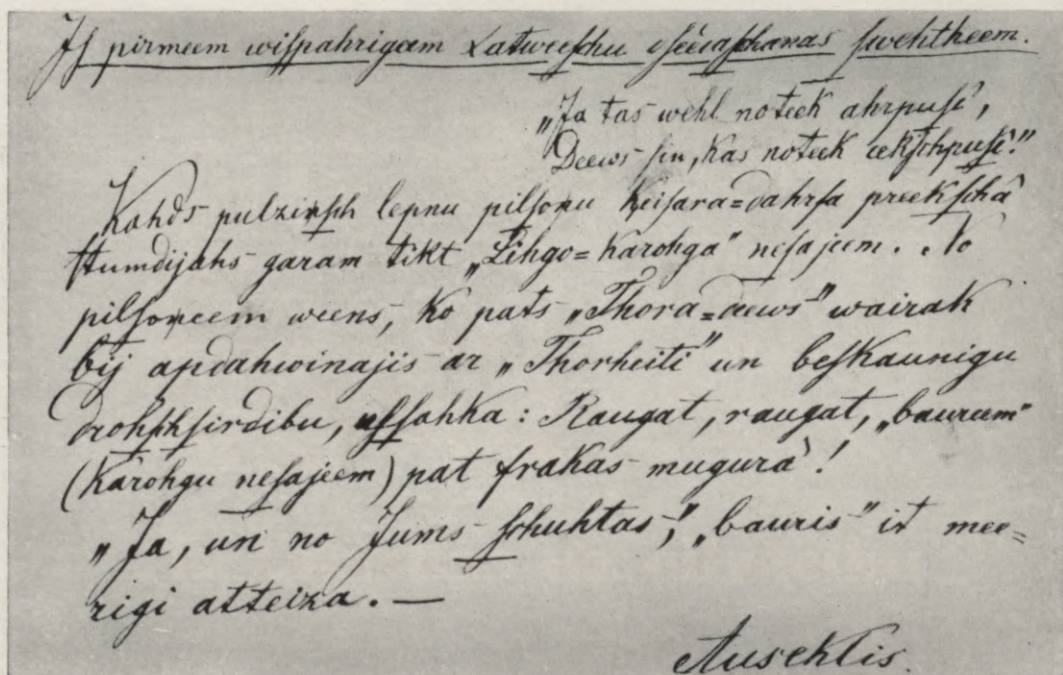 Is pirmeem wispahrigeem Latweeschu dseedaschanas swehtkeem.
„Ja tas wehl noteek ahrpusē,
Deews sin, kas noteek eekschpusē."
Kahds pulzinsch lepnu pilsoņu keisara=dahrsa preekschâ
stumdijahs garam tikt „Lihgo=karohga" nesajeem. No
pilsoņeem weens, ko pats „Thora=deews" wairak
bij apdahwinajis ar „Thorheiti" un beskaunigu
drohschsirdibu, essahka: Raugat, raugat, „baureem"
(karohgu nesajeem) pat frakas mugurâ!
„Ja, un no Jums schuhtas", „bauris" it mee=
rigi atteiza. —
Auseklis.